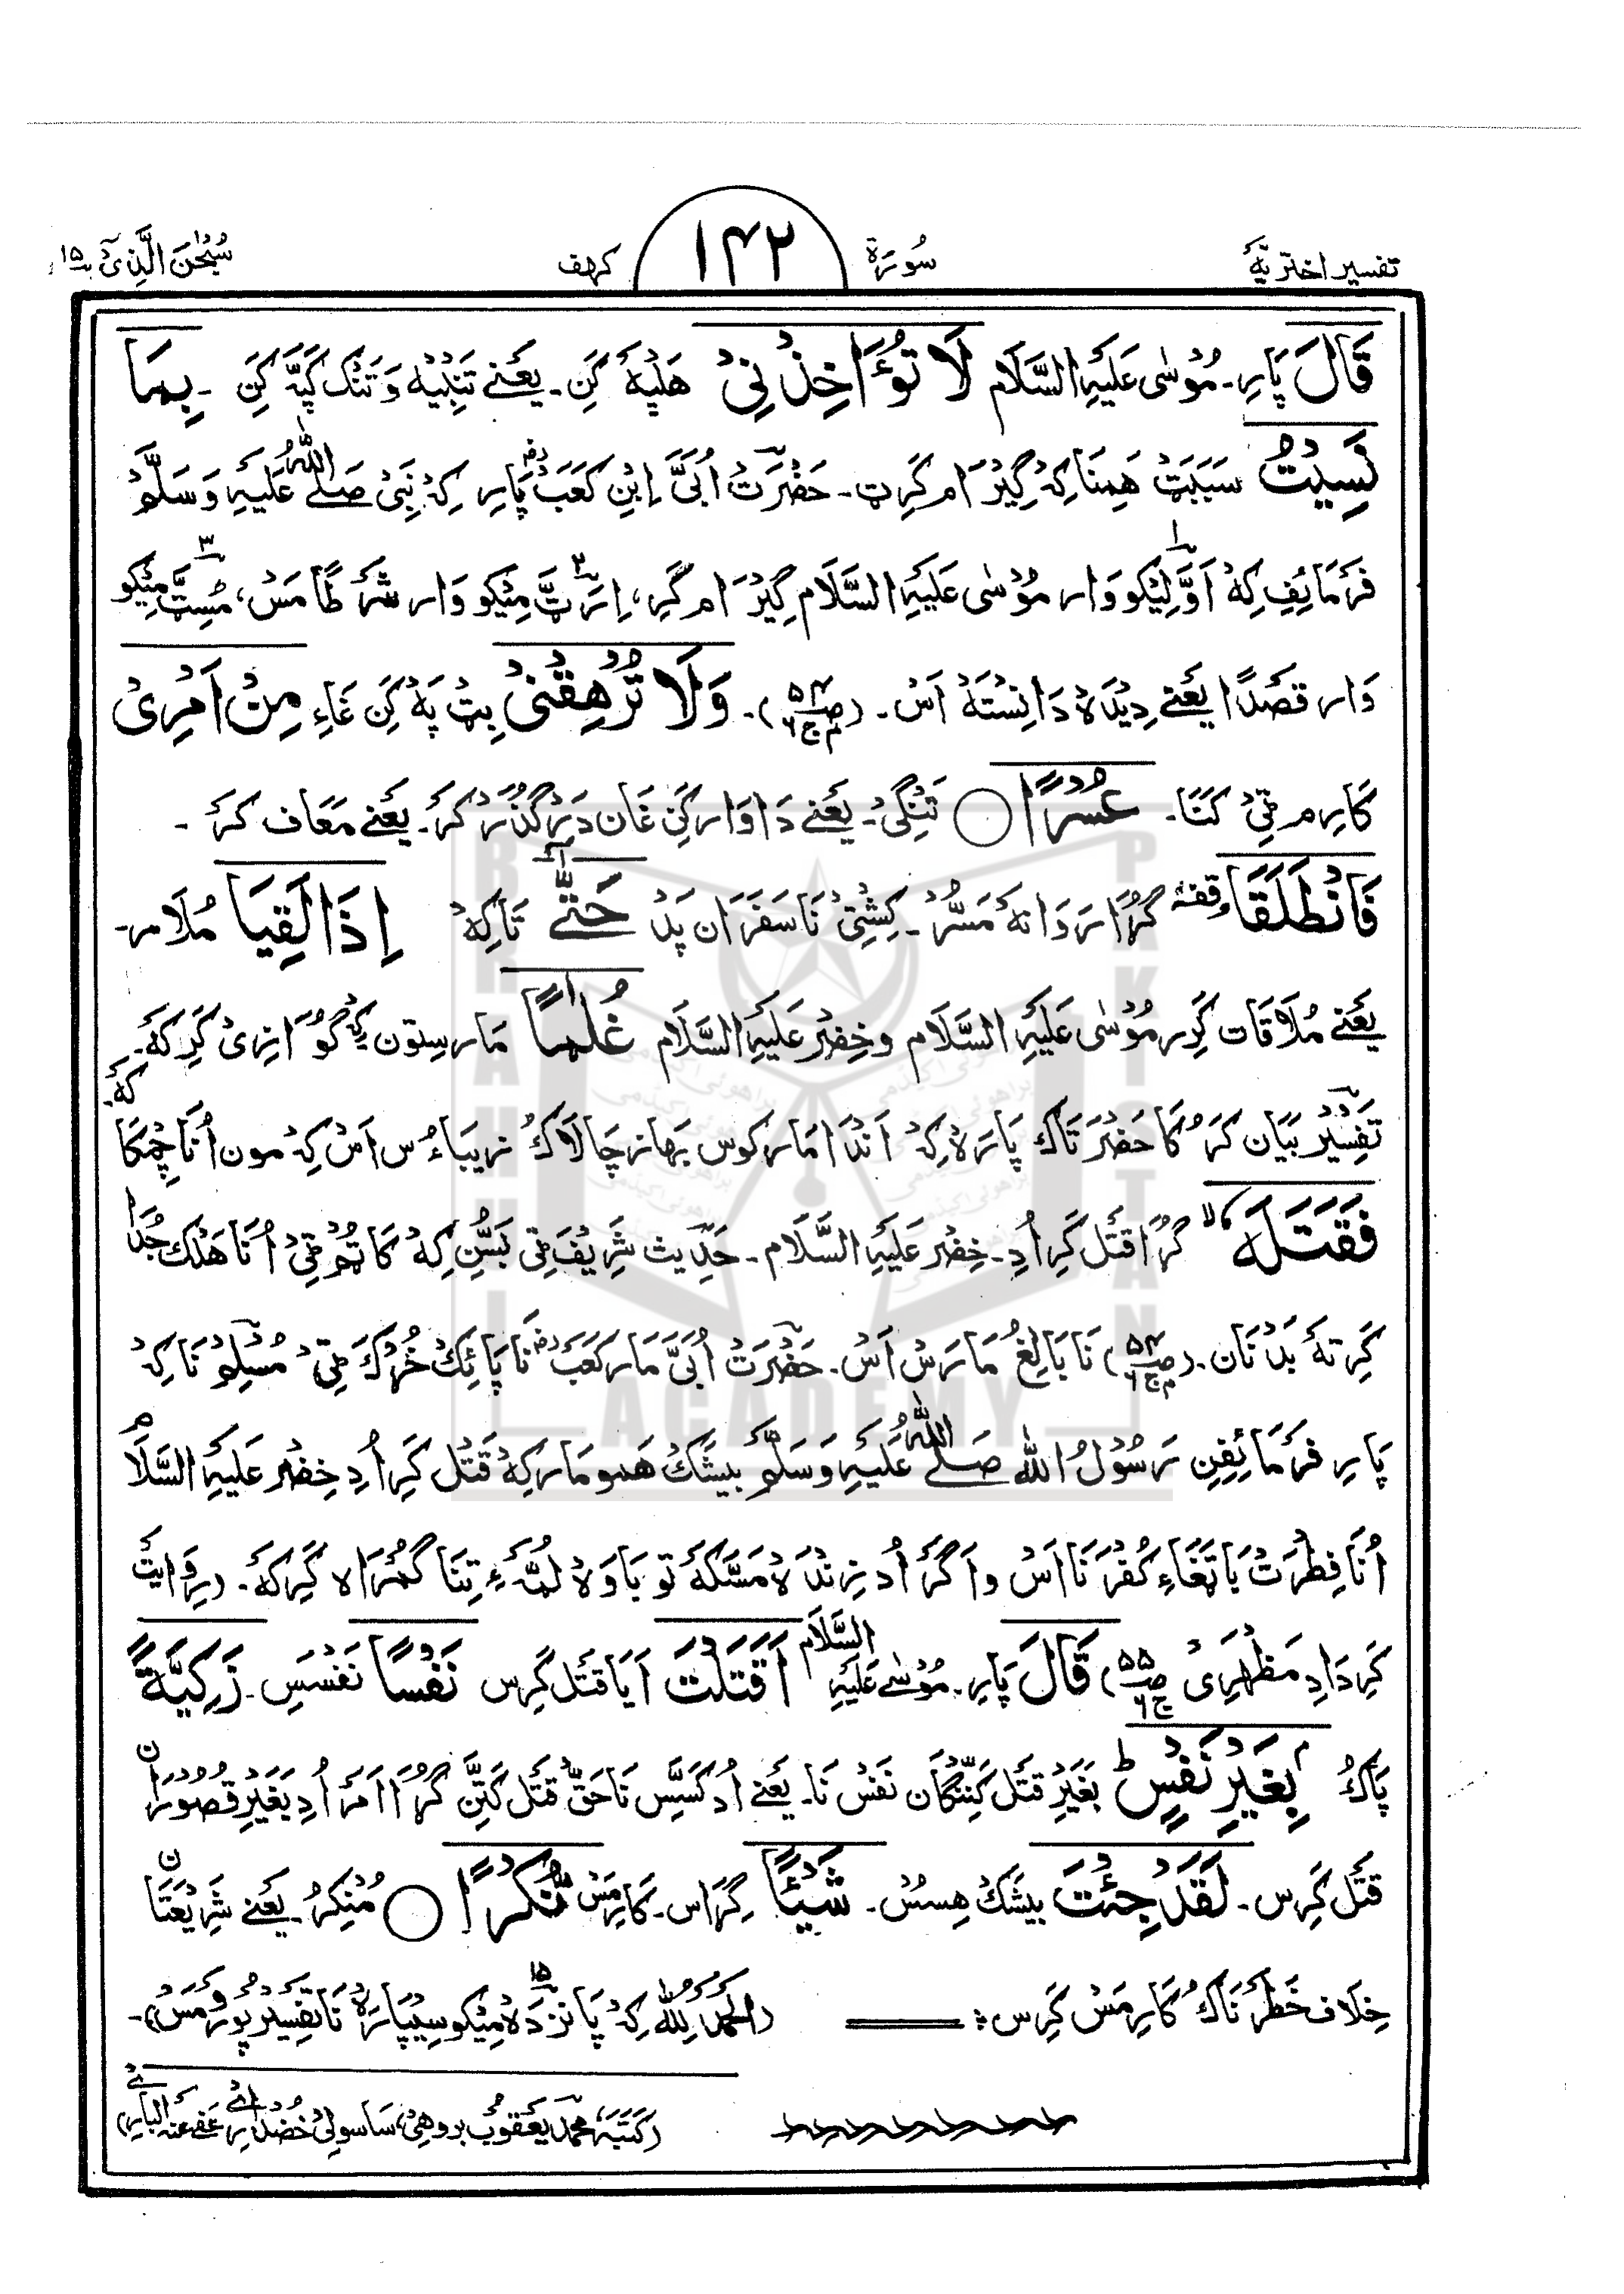 تفسیر اختریہ سُورَۃ ۱۴۲ کہف سُبْحٰنَ الَّذِیْ ۱۵
قَالَ پَارِ۔ مُوْسٰی عَلَیْہِ السَّلَام لَا تُؤَاخِذْنِیْ ھَلْپَہ کَنِ۔ یَعْنے تَنْبِیْہ وَ تَنْک کَپَّہ کَنِ ۔ بِمَا
نَسِیْتُ سَبَبَتْ ھَمْنَا کِہ گِیْرَام کَرِٹ۔ حَضْرَتْ اُبَیَّ اِبْنِ کَعَبْ پَارِ کِہ نَبِیْ صَلَے اللّٰہُ عَلَیْہِ وَسَلَّمْ
فَرْمَائِفِ کِہ اَوَّلِیْکو وَار مُوْسٰی عَلَیْہِ السَّلَام گِیْرَام گَرِ، اِرَٹِّ مِیْکو وَار شَرَطَامَسْ، مُسِٹِّ مِیْکو
وَار قَصْدًا یَعْنے دِیْدَہ دَانِسْتَہ اَسْ۔ (صـ۵۴ م ج۶)۔ وَلَا تُرْھِقْنِیْ بِٹْ پَہ کَنِ غَاءِ مِنْ اَمْرِیْ
کَارِم ٹِیْ کَنَا۔ عُسْرًا ○ تَنْگِیْ۔ یَعْنے دَا وَار کَنِ غَان دَرْگُذَرْ کَرَ۔ یَعْنے مَعَاف کَرَ ۔
فَانْطَلَقَا وقفہ گُڑَا رَوَانَہ مَسُّر۔ کِشْتِیْ نَا سَفَرَان پَدْ حَتّٰۤی تَاکِہ اِذَا لَقِیَا مُلَامِر۔
یَعْنے مُلَاقَات گِرِر مُوْسٰی عَلَیْہِ السَّلَام و خِضْر عَلَیْہِ السَّلَام غُلٰمًا مَارسِتون کِہ گُوَازِیْ گَرِکَہَ۔
تَفْسِیْر بَیَان کَرُکَا حَضْرَتَاک پَارَہ کِہ اَنْدَا مَارکوس بَھاز چَالَاکُ زیباءُس اَسْ کِہ مون اُنَا چِمِکَا کَہَ۔
فَقَتَلَہٗ لا گُڑَا قَتَل گَرِ اُدِ۔ خِضْر عَلَیْہِ السَّلَام۔ حَدِیث شَرِیْفَٹِی بَسُّنِ کِہ کَاٹُمْ ٹِیْ اُنَا ھَلْک جُدَا
کَرِتَہ بَدَنَان۔ (صـ۵۴ م ج۶) نَابَالِغُ مَارَسْ اَسْ۔ حَضْرَتْ اُبَیَّ مَارکَعَبْ نَا پَائِنْک خُڑْکَ ٹِیْ مُسْلِمْ نَا کِہ
پَارِ فَرْمَائِفِن رَسُوْلُ اللّٰہ صَلَے اللّٰہُ عَلَیْہِ وَسَلَّمْ بیشَکْ ھَمو مَار کِہ قَتَل گَرِ اُدِ خِضْر عَلَیْہِ السَّلَام
اُنَا فِطْرَتْ بَاتِغَاءِ کُفْرَنَا اَسْ و اَگَر اُد زِنْدَہ مَسَّکَہ تو بَاوَہ لُمَّہ ءِ تِنَا گُمْرَاہ گَرِکَہَ۔ رِوَایَتْ
کَرِدَادِ مَظْہَرِیْ صـ۵۵ ج۶) قَالَ پَارِ۔ مُوْسٰے عَلَیْہِ السَّلَام اَقَتَلْتَ اَیَا قَتَل گَرِس نَفْسًا نَفْسَسِ۔ زَکِیَّۃًۢ
پَاکُ بِغَیْرِ نَفْسٍ ط بَغَیْرِ قَتَل کَنِنْگَان نَفْسْ نَا۔ یَعْنے اُد کَسَسِّ نَاحَقْ قَتَل کَتَنَّ گُڑَا اَمَرْ اُدِ بَغَیْرِ قُصُوْرَان
قَتَل گَرِس۔ لَقَدْ جِئْتَ بیشَکْ ھِسُسْ۔ شَیْـًٔا گِرَاس۔ کَارِمَسْ نُّکْرًا ○ مُنْکِرُ۔ یَعْنے شَرِیْعَتَنَا
خِلَاف خَطْرَنَاکُ کَارِمَسْ گَرِس ؛ (اَلْحَمْدُ لِلّٰہ کِہ پَانزدَہ مِیْکو سِیْپَارَہ نَا تَفْسِیْر پُورو مَسْ)۔
(کَتَبَہٗ، محمد یَعْقوب بروھی، سَاسولِیْ خُضْدَارِیْ عُفِیَ عَنْہُ البَارِیْ)
BRAHUI ACADEMY PAKISTAN